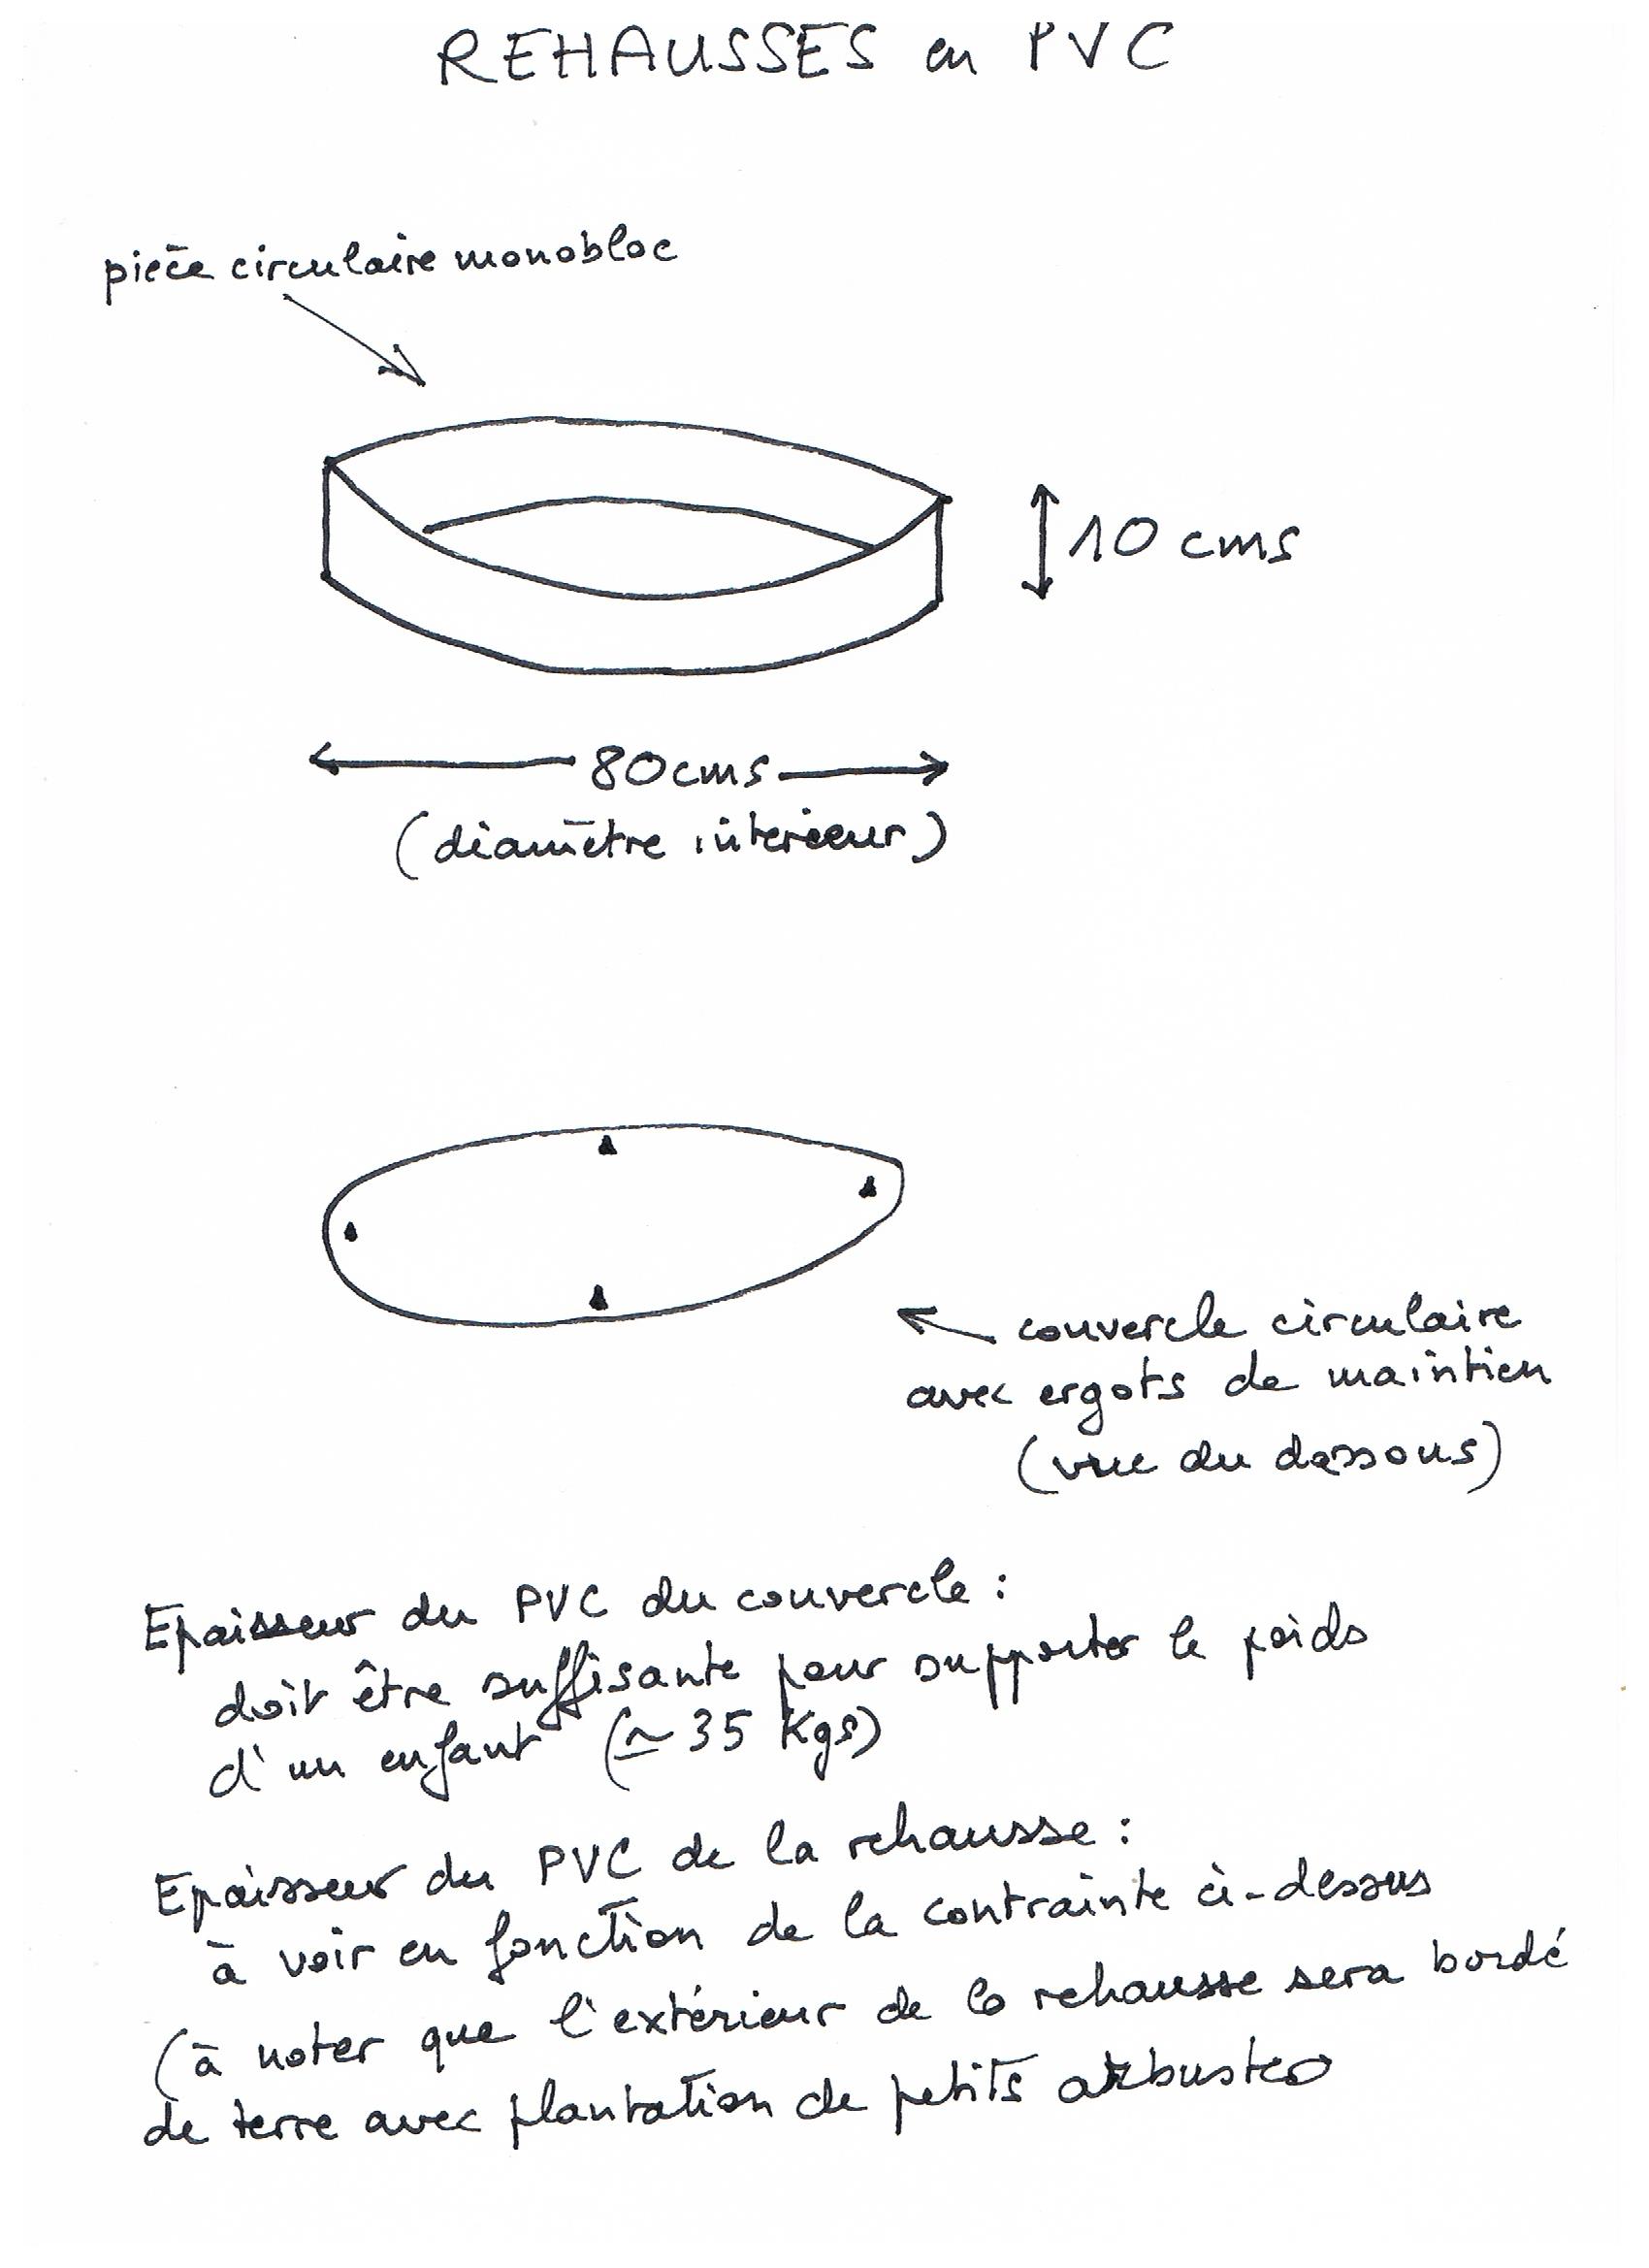 REHAUSSES en PVC
pièce circulaire monobloc
10 cms
80 cms
(diamètre intérieur)
couvercle circulaire
avec ergots de maintien
(vue du dessous)
Epaisseur du PVC du couvercle :
doit être suffisante pour supporter le poids
d'un enfant (≃ 35 Kgs)
Epaisseur du PVC de la rehausse :
à voir en fonction de la contrainte ci-dessus
(à noter que l'extérieur de la rehausse sera bordé
de terre avec plantation de petits arbustes